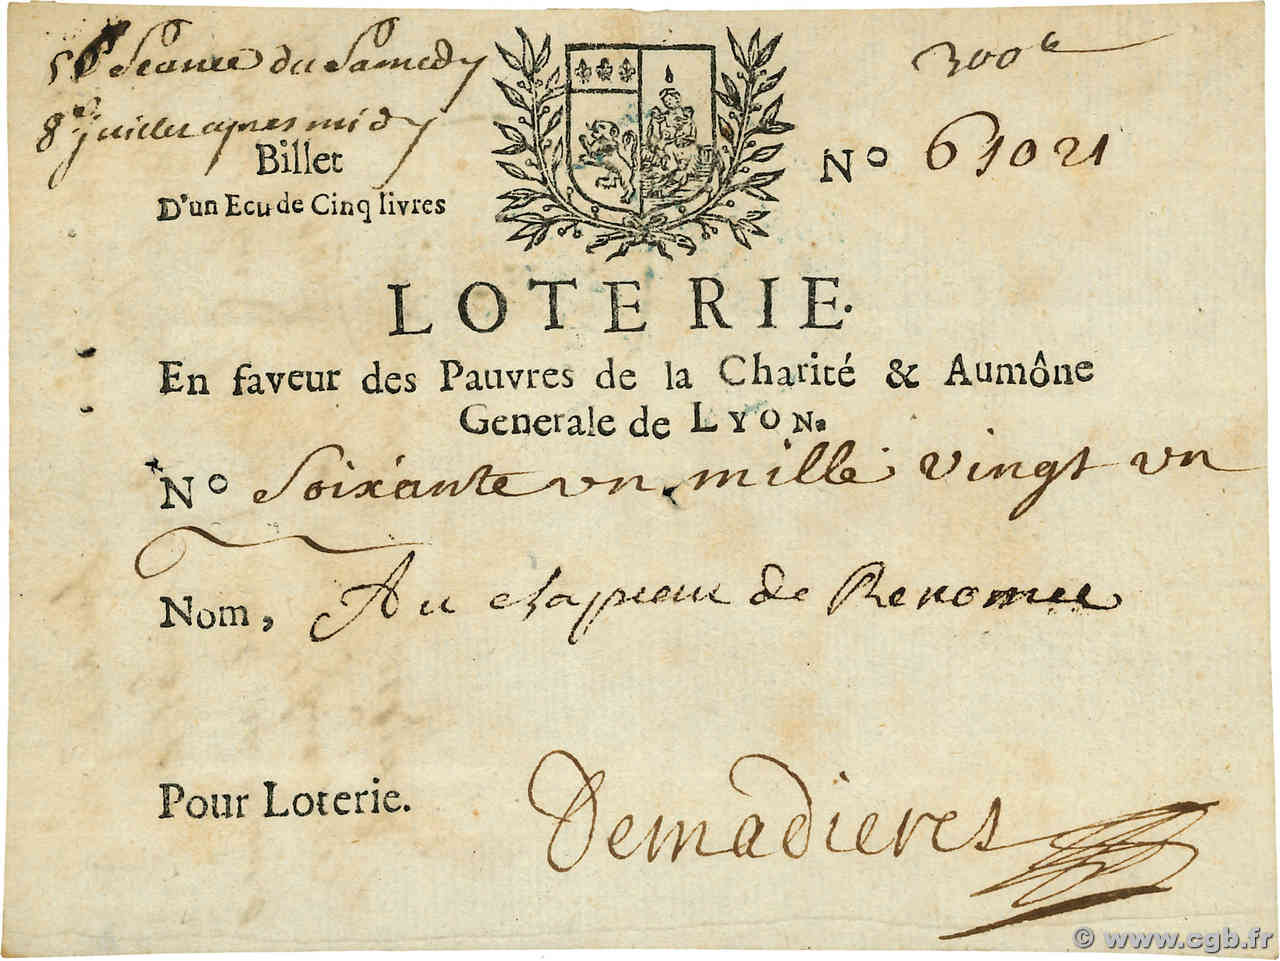 Seance du Samedy
300ᵗᵗ
8ᵉ Juillet apres midy
Billet
Nº 61021
D'un Ecu de Cinq livres
LOTERIE.
En faveur des Pauvres de la Charité & Aumône
Generale de LYON.
Nº Soixante un mille vingt un
Nom, Au chapeau de Renomee
Pour Loterie. Demadieres
© www.cgb.fr